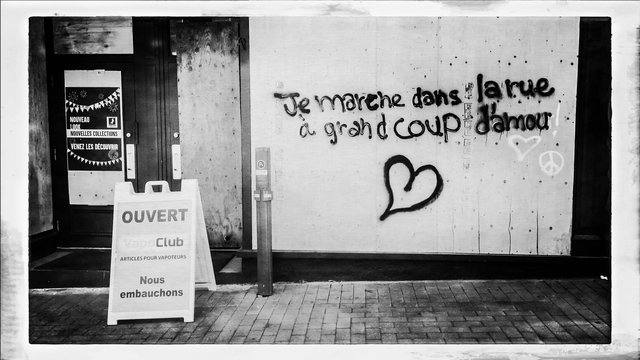 NOUVEAU
LOOK
NOUVELLES COLLECTIONS
VENEZ LES DÉCOUVRIR
OUVERT
VapoClub
ARTICLES POUR VAPOTEURS
Nous
embauchons
Je marche dans la rue
à grand coup d'amour